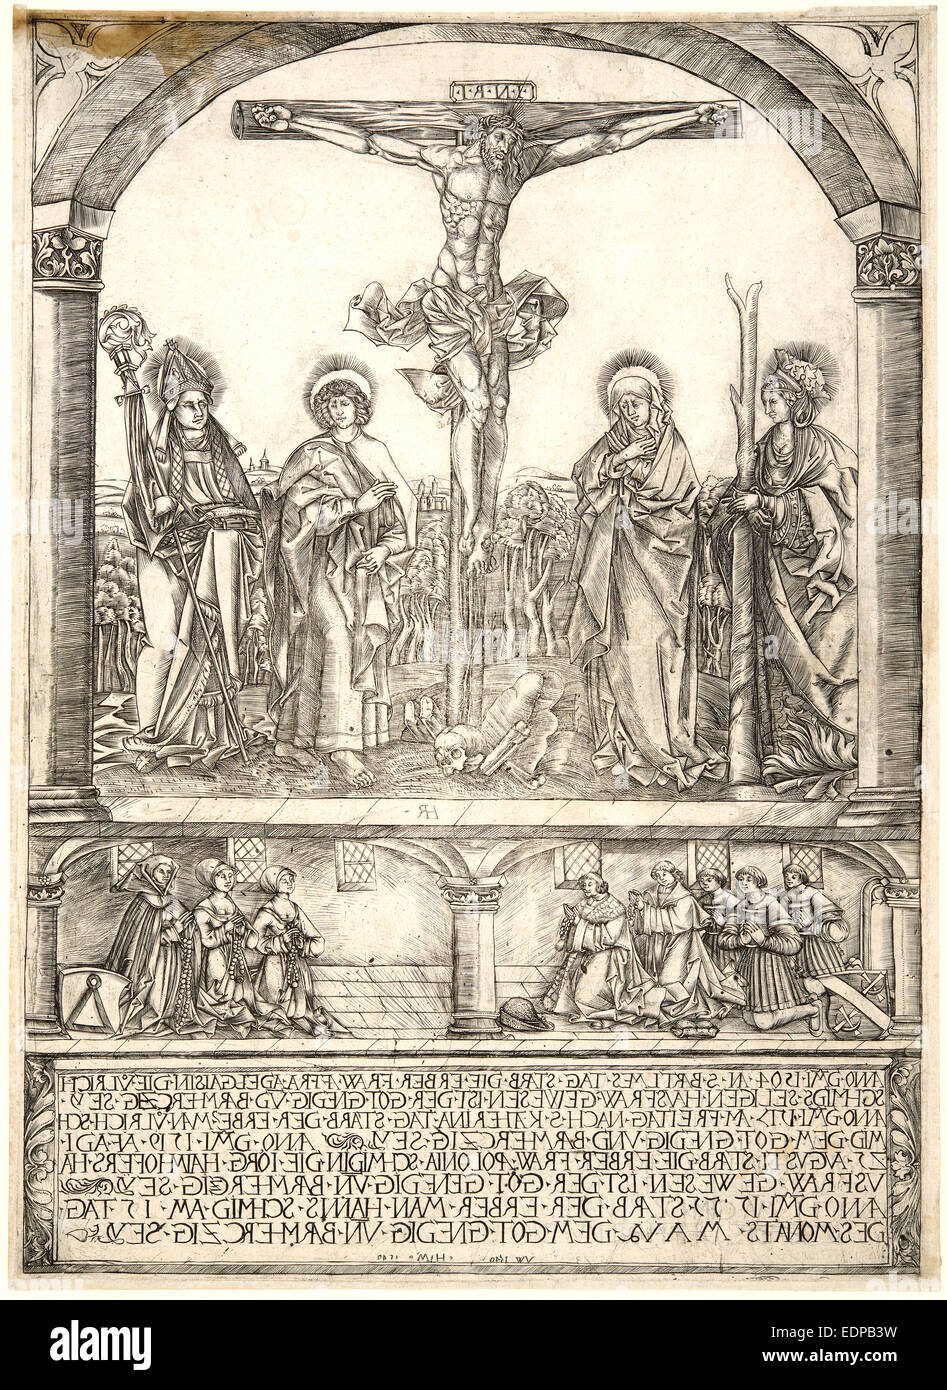 I·N·R·I
HR
ANO·DMI·1504·AN·S·BRTLMES·TAG·STARB·DIE·ERBER·FRAW·ADELGAISIN·DIE·VLRICH
SCHMIDS·SELIGEN·HASFRAW·GEWESEN·IST·DER·GOT·GNEDIG·VND·BARMERCZIG·SEY
ANO·DMI·1517·AM·FREITAG·NACH·S·KATERINA·TAG·STARB·DER·ERBER·MAN·VLRICH·SCH
MID·DEM·GOT·GNEDIG·VND·BARMERCZIG·SEY·ANO·DMI·1519
25·AGVSTI·STARB·DIE·ERBER·FRAW·APOLONIA·SCHMIDIN·DIE·IORG·HAINHOFERS·HA
VSFRAW·GEWESEN·IST·DER·GOT·GENEDIG·VN·BARMERCZIG·SEY
ANO·DMI·STARB·DER·ERBER·MAN·HANNS·SCHMID·AM·15·TAG
DES·MONATS·DEM·GOT·GNEDIG·VN·BARMERCZIG·SEY
alamy
alamy stock photo
EDPB3W
www.alamy.com